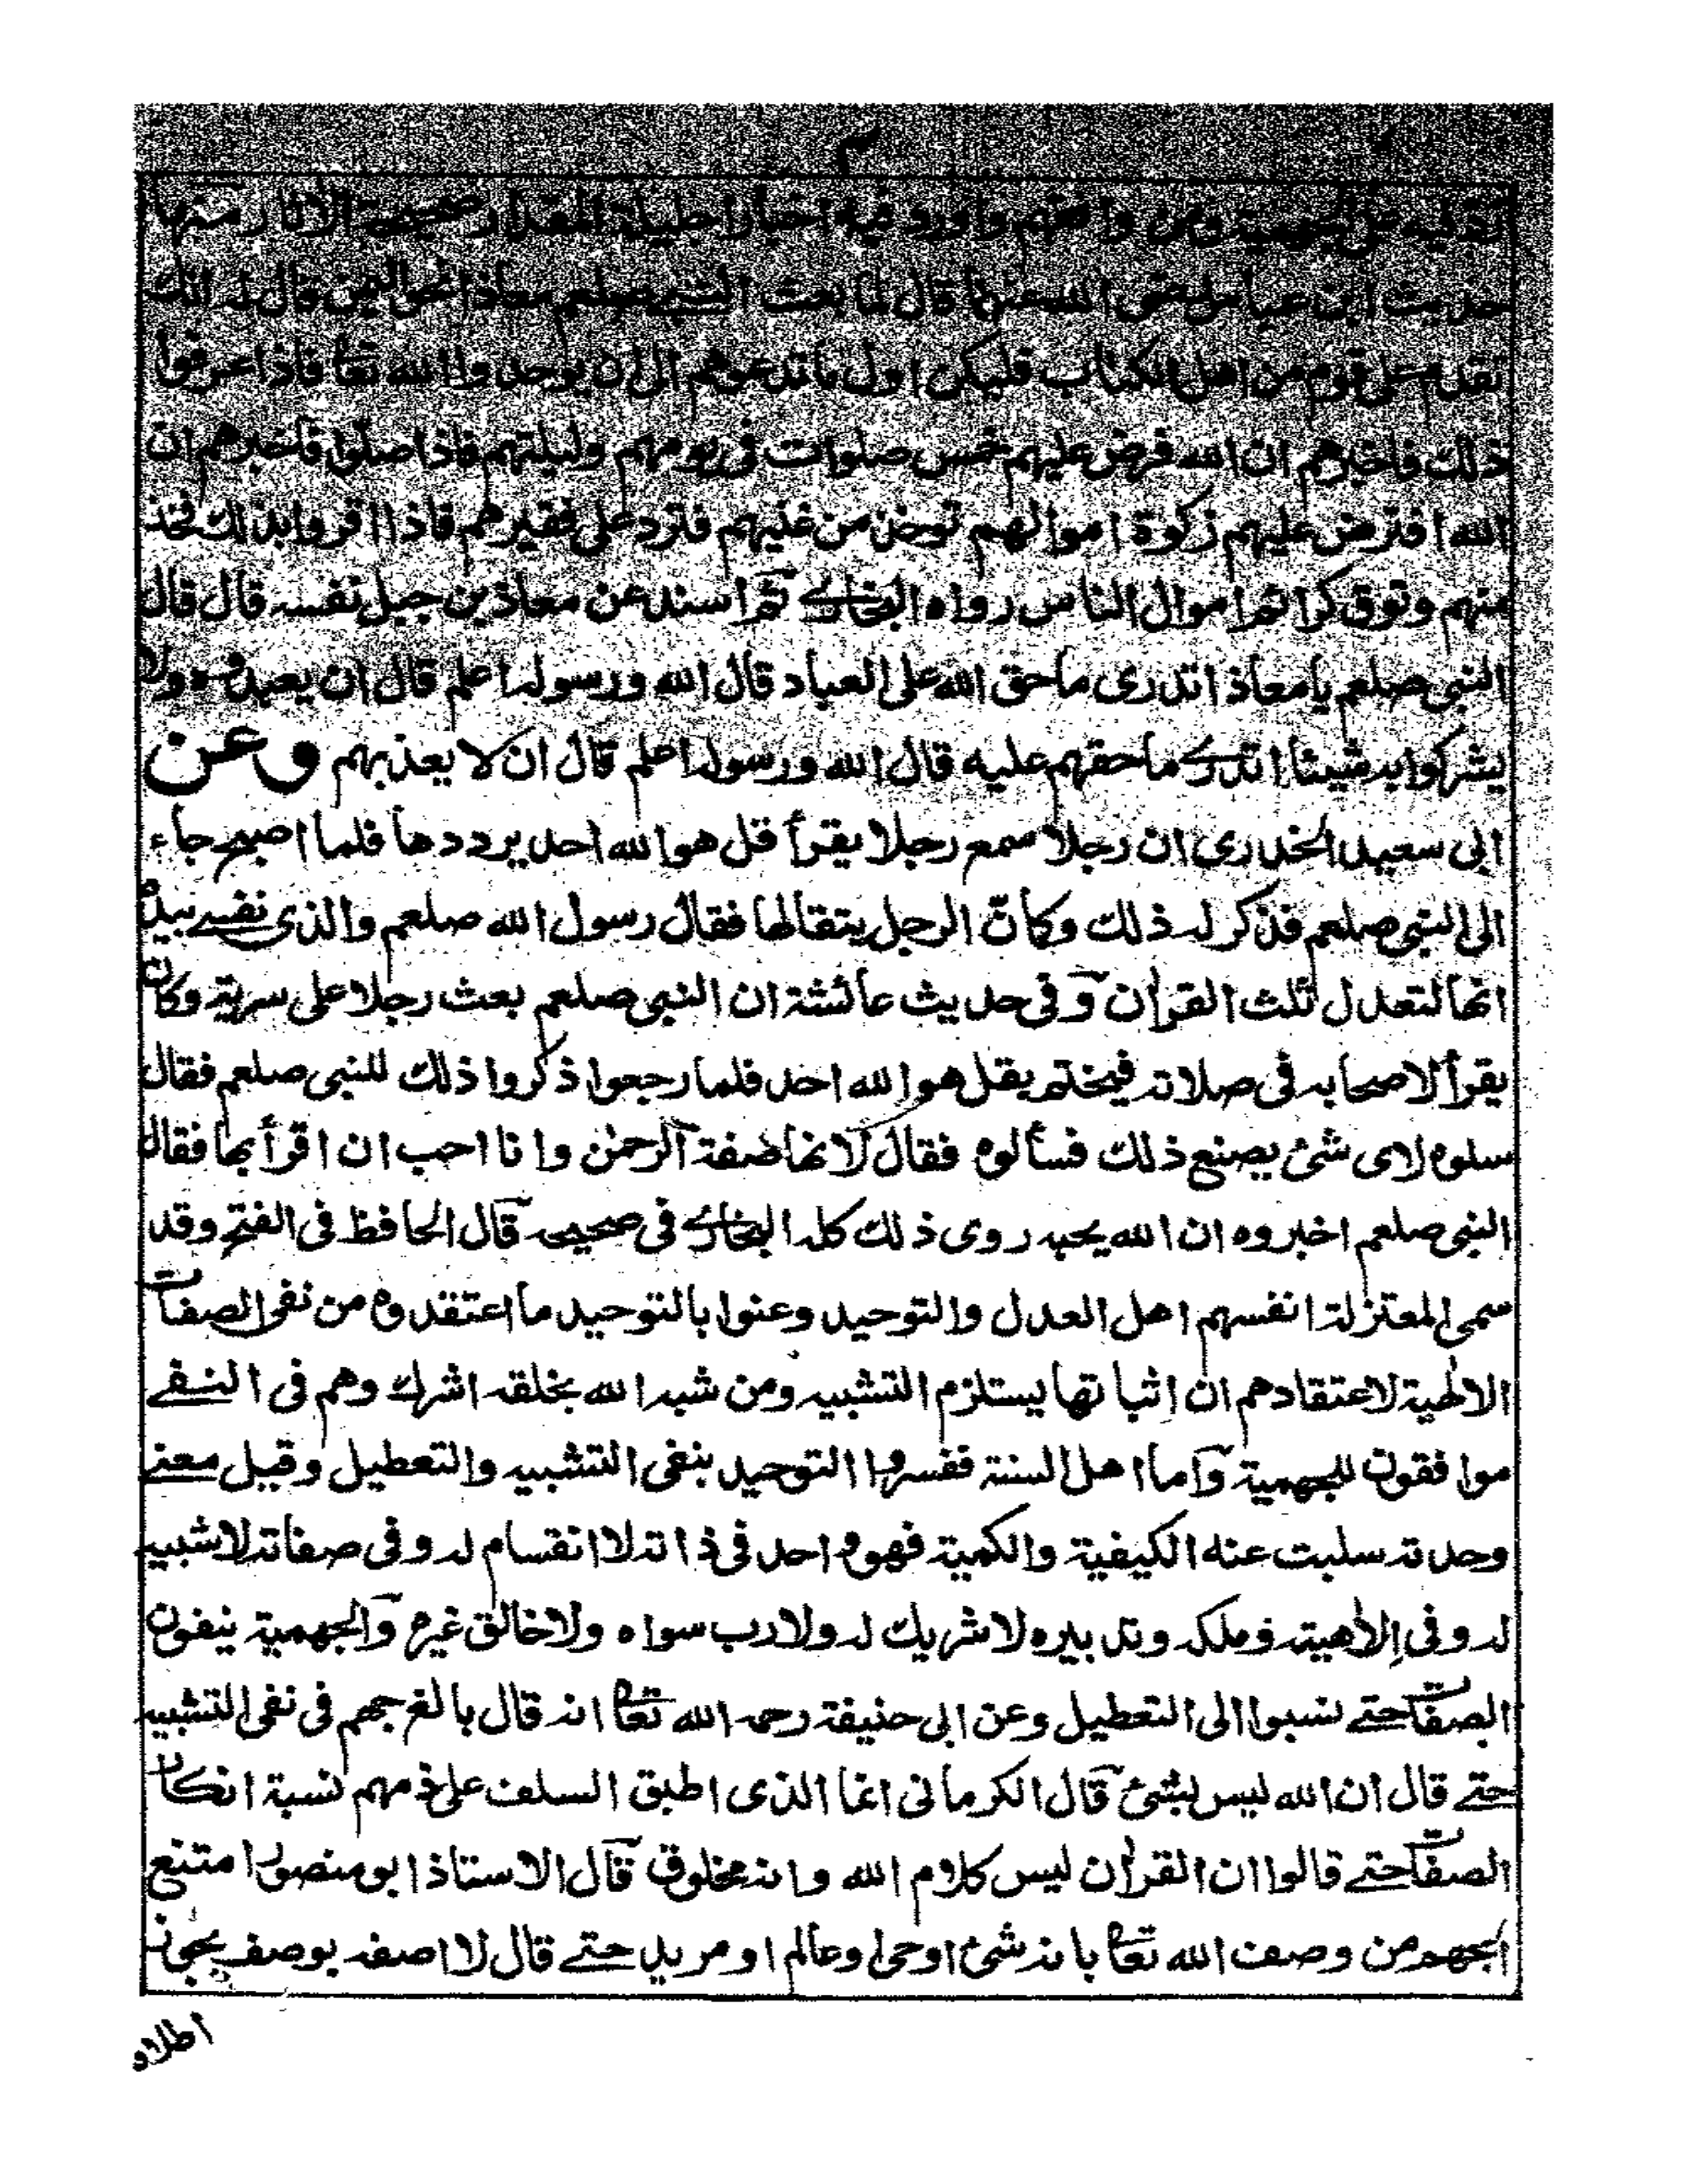 ٣
من الجهمية ومن وافقهم واورد فيه اخبارا جليلة المقدار صحيحة الآثار منها
حديث ابن عباس رضى الله عنهما قال لما بعث النبي صلعم معاذا نحو اليمن قال له انك
تقدم على قوم من اهل الكتاب فليكن اول ما تدعوهم الى ان يوحدوا الله تعا فاذا عرفوا
ذلك فاخبرهم ان الله فرض عليهم خمس صلوات فى يومهم وليلتهم فاذا صلوا فاخبرهم ان
الله افترض عليهم زكوة اموالهم توخذ من غنيهم فترد على فقيرهم فاذا اقروا بذلك فخذ
منهم وتوق كرائم اموال الناس رواه البخارے ثم اسند عن معاذ بن جبل نفسه قال قال
النبي صلعم يا معاذ اتدرى ما حق الله على العباد قال الله ورسوله اعلم قال ان يعبدوه ولا
يشركوا به شيئا اتدرے ما حقهم عليه قال الله ورسوله اعلم قال ان لا يعذبهم وعن
ابى سعيد الخدرى ان رجلا سمع رجلا يقرأ قل هو الله احد يرددها فلما اصبح جاء
الى النبى صلعم فذكر له ذلك وكانّ الرجل يتقالها فقال رسول الله صلعم والذى نفسے بيده
انها لتعدل ثلث القرأن وفى حديث عائشة ان النبى صلعم بعث رجلا على سرية وكان
يقرأ لاصحابه فى صلاته فيختم بقل هو الله احد فلما رجعوا ذكروا ذلك للنبى صلعم فقال
سلوه لاى شئ يصنع ذلك فسألوه فقال لانها صفة الرحمٰن وانا احب ان اقرأ بها فقال
النبى صلعم اخبروه ان الله يحبه روى ذلك كله البخارے فى صحيحه قال الحافظ فى الفتح وقد
سمى المعتزلة انفسهم اهل العدل والتوحيد وعنوا بالتوحيد ما اعتقدوه من نفى الصفات
الالٰهية لاعتقادهم ان اثباتها يستلزم التشبيه ومن شبه الله بخلقه اشرك وهم فى النفے
موافقون للجهمية واما اهل السنة ففسروا التوحيد بنفى التشبيه والتعطيل وقيل معنے
وحدته سلبت عنه الكيفية والكمية فهو واحد فى ذاته لا انقسام له وفى صفاته لا شبيه
له وفى اِلٰاهيته وملكه وتدبيره لا شريك له ولا رب سواه ولا خالق غيره والجهمية ينفون
الصفات حتے نسبوا الى التعطيل وعن ابى حنيفة رحمه الله تعا انه قال بالغ جهم فى نفى التشبيه
حتے قال ان الله ليس بشئ قال الكرمانى انما الذى اطبق السلف على ذمهم نسبة انكار
الصفات حتے قالوا ان القرأن ليس كلام الله وانه مخلوق قال الاستاذ ابو منصور امتنع
الجهم من وصف الله تعا بانه شئ او حى او عالم او مريد حتے قال لا اصفه بوصف يجوز
اطلاق